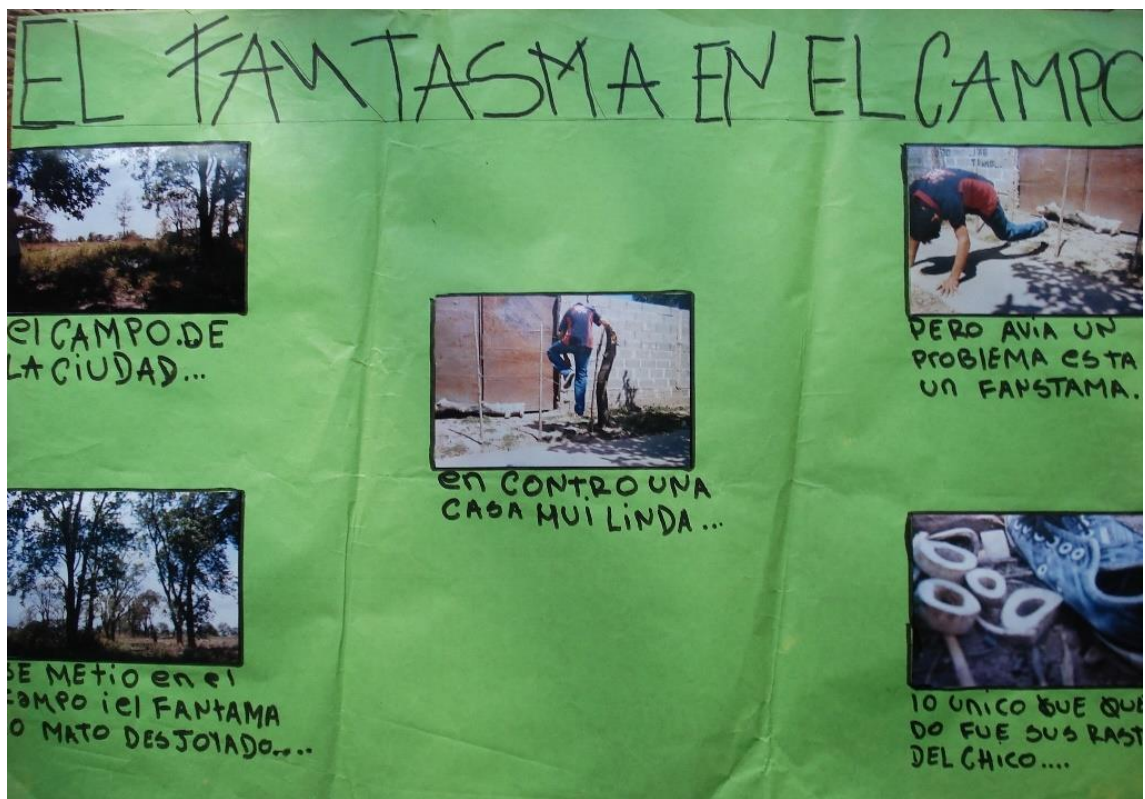 EL FANTASMA EN EL CAMPO
el CAMPO.DE
LA CiUDAD...
en CONTRO UNA
CASA MUI LiNDA...
PERO AVIA UN
PROBLEMA esta
un FANSTAMA.
SE METiO en el
CAMPO i el FANTAMA
O MATO DESJOYADO....
lO UNiCO QUE QUE
DO FUE SUS RAST
DEL CHICO....